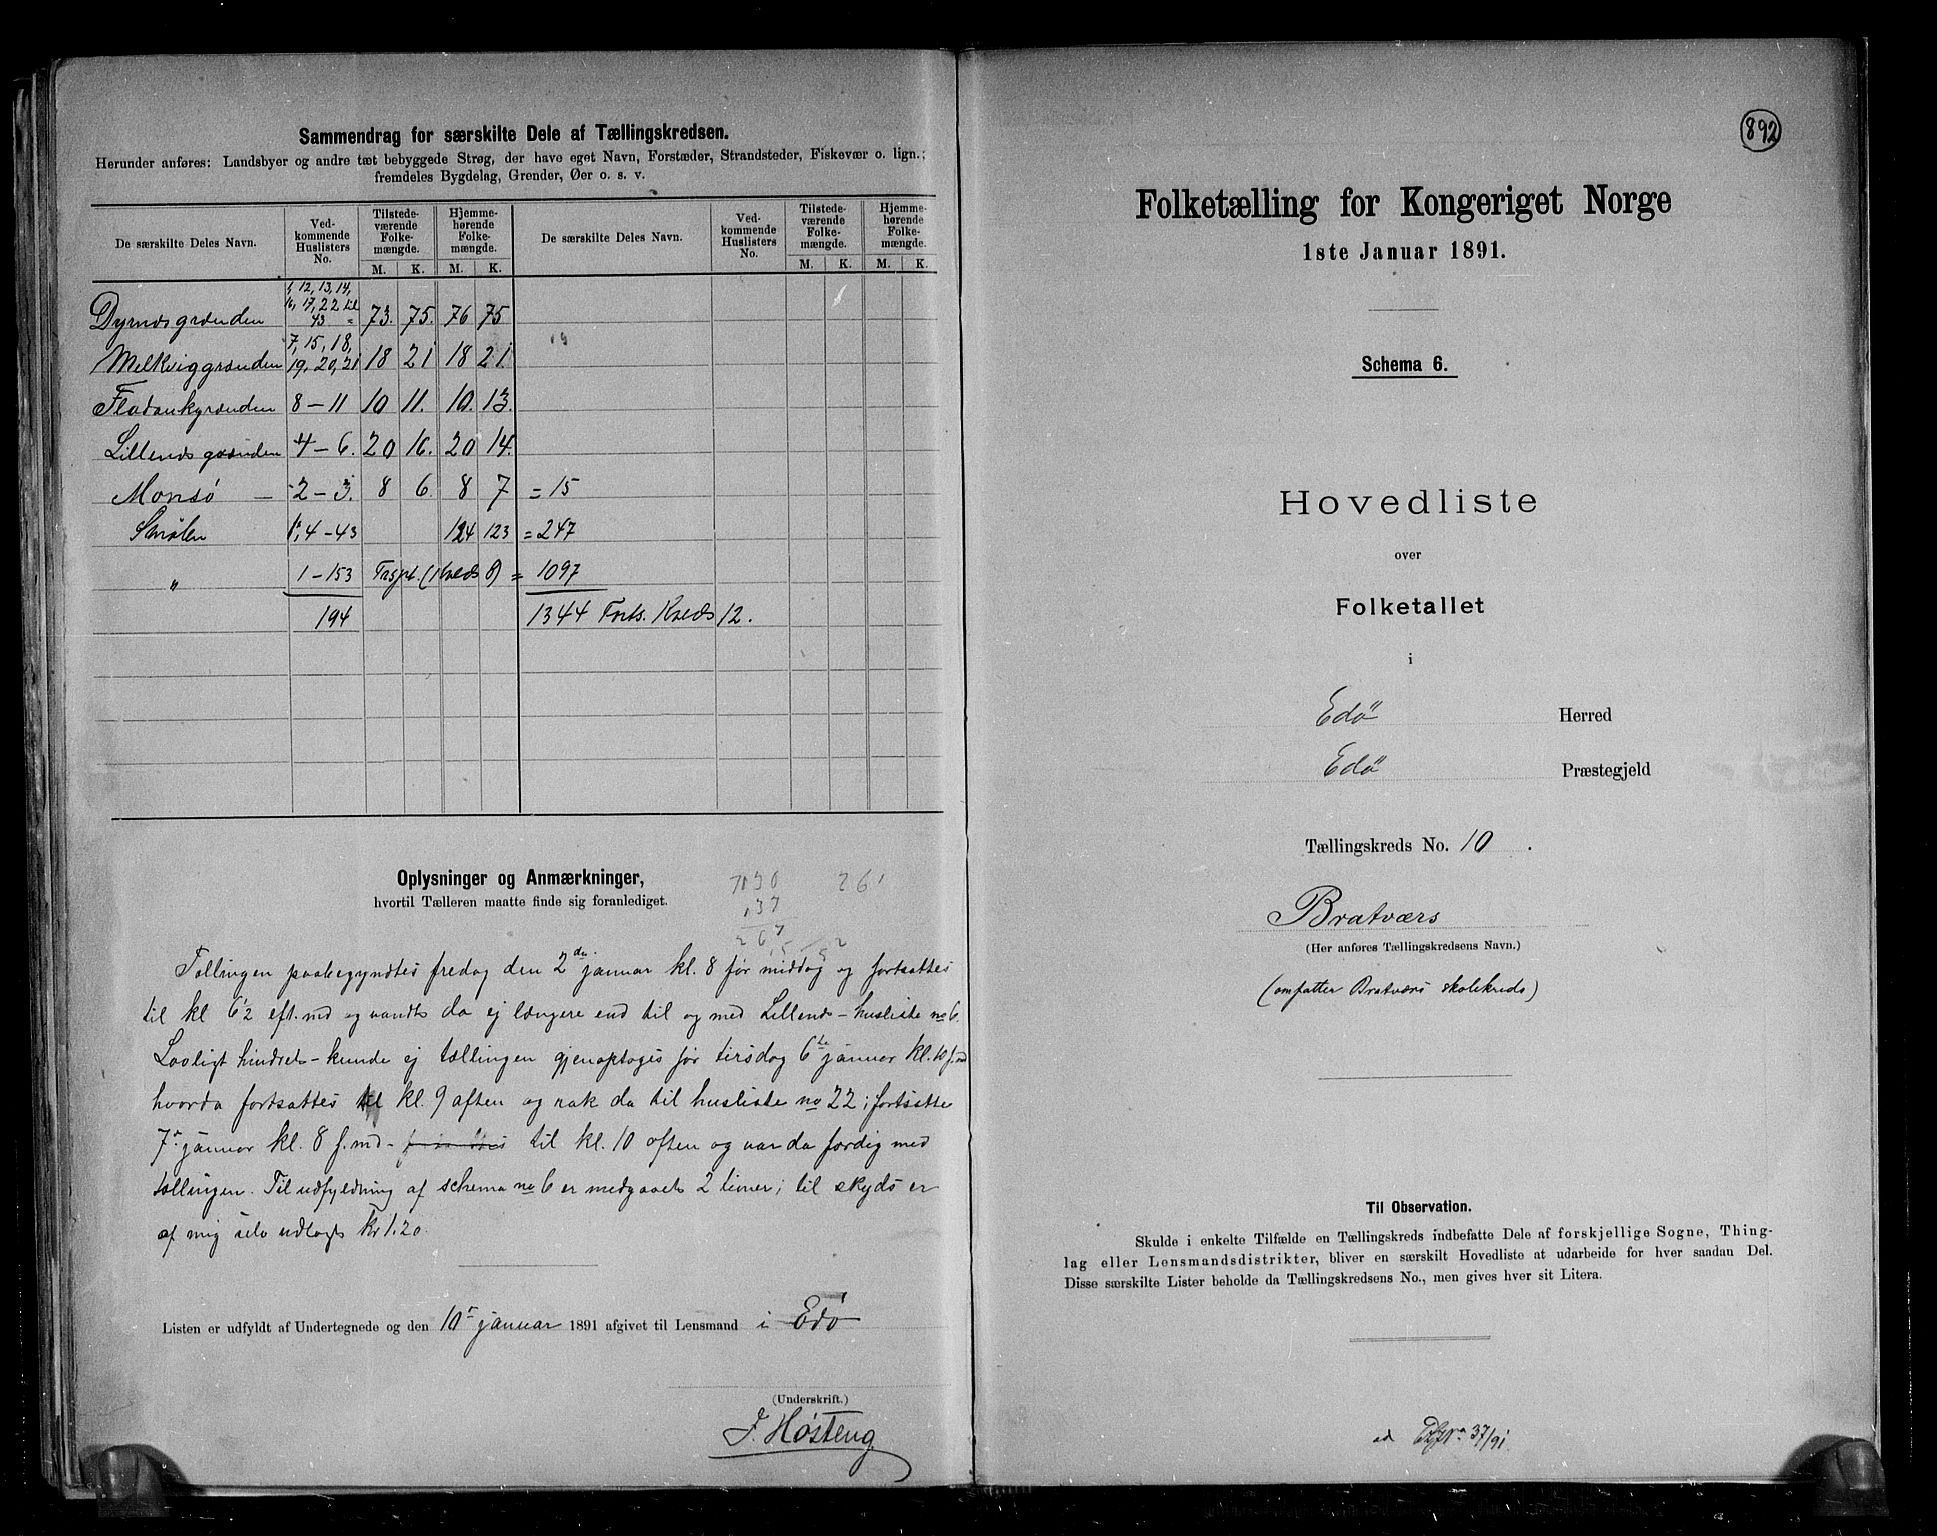 Sammendrag for særskilte Dele af Tællingskredsen.
Herunder anføres: Landsbyer og andre tæt bebyggede Strøg, der have eget Navn, Forstæder, Strandsteder, Fiskevær o. lign.;
fremdeles Bygdelag, Grender, Øer o. s. v.
De særskilte Deles Navn. Ved-kommende Huslisters No. Tilstede-værende Folke-mængde. Hjemme-hørende Folke-mængde. De særskilte Deles Navn. Ved-kommende Huslisters No. Tilstede-værende Folke-mængde. Hjemme-hørende Folke-mængde.
M. K. M. K. M. K. M. K.
Dyrnæsgrænden 1, 12, 13, 14, 16, 17, 22 til 43 73. 75. 76 75
Melkviggrænden 7, 15, 18, 19, 20, 21 18 21 18 21.
8 – 11 10 11. 10. 13.
Lillenæsgrænden 4 – 6. 20 16. 20 14.
Monsø – 2 – 3. 8 6. 8 7 = 15
Smølen 1, 4 – 43 124 123 = 247
" 1 – 153 Trspt. (Kreds 8) = 1097
194 1344 Forts. Kreds 12.
Oplysninger og Anmærkninger,
hvortil Tælleren maatte finde sig foranlediget.
Tællingen paabegyndtes fredag den 2den januar kl. 8 før middag og fortsattes
til kl 6½ eft.md og vandts da ej længere end til og med Lillenæs – husliste no 6.
Lovligt hindret – kunde ej tællingen gjenoptages før tirsdag 6te januar kl. 10 f.md
hvorda fortsattes til kl. 9 aften og rak da til husliste no 22; fortsatte
7de januar kl. 8 f.md – til kl. 10 aften og var da færdig med
tællingen. Til udfyldning af schema no 6 er medgaaet 2 timer; til skyds er
af mig selv udlagt Kr 1.20.
Listen er udfyldt af Undertegnede og den 10de januar 1891 afgivet til Lensmand i Edø
(Underskrift.)
J. Høsteng
892
Folketælling for Kongeriget Norge
1ste Januar 1891.
Schema 6.
Hovedliste
over
Folketallet
i
Edø Herred
Edø Præstegjeld
Tællingskreds No. 10.
Bratværs
(Her anføres Tællingskredsens Navn.)
(omfatter Bratværs skolekreds)
Til Observation.
Skulde i enkelte Tilfælde en Tællingskreds indbefatte Dele af forskjellige Sogne, Thing-
lag eller Lensmandsdistrikter, bliver en særskilt Hovedliste at udarbeide for hver saadan Del.
Disse særskilte Lister beholde da Tællingskredsens No., men gives hver sit Litera.
ad 37/91